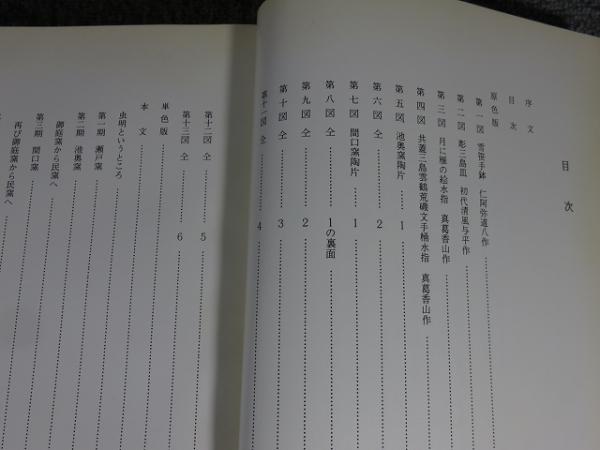 目次
序文
目次
原色版
第一図 雪笹手鉢 仁阿弥道八作
第二図 彫三島皿 初代清風与平作
第三図 月に雁の絵水指 真葛香山作
第四図 共蓋三島雲鶴荒磯文手桶水指 真葛香山作
第五図 池奥窯陶片 1
第六図 仝 2
第七図 間口窯陶片 1
第八図 仝 1の裏面
第九図 仝 2
第十図 仝 3
第十一図 仝 4
第十二図 仝 5
第十三図 仝 6
単色版
本文
虫明というところ
第一期 瀬戸窯
第二期 池奥窯
御庭窯から民窯へ
第三期 間口窯
再び御庭窯から民窯へ